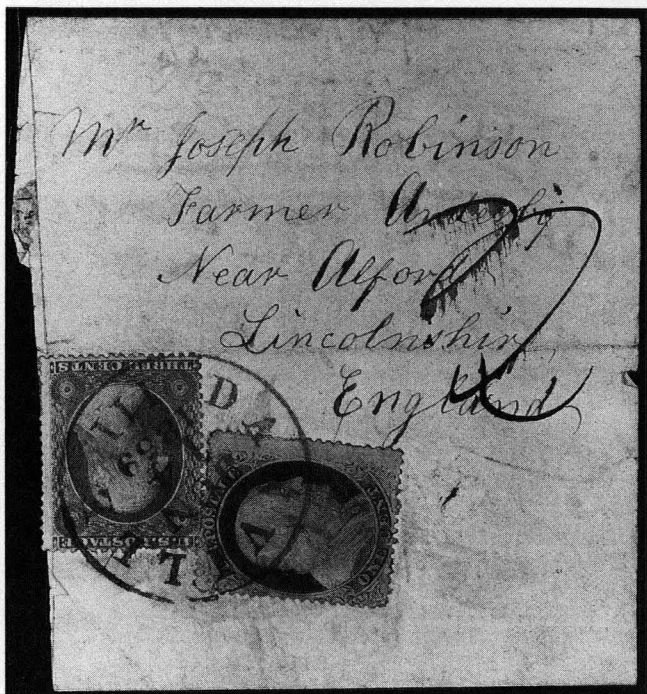 Mr Joseph Robinson
Farmer Anderby
Near Alford
Lincolnshire
England
THREE CENTS
U.S. POSTAGE
POSTAGE